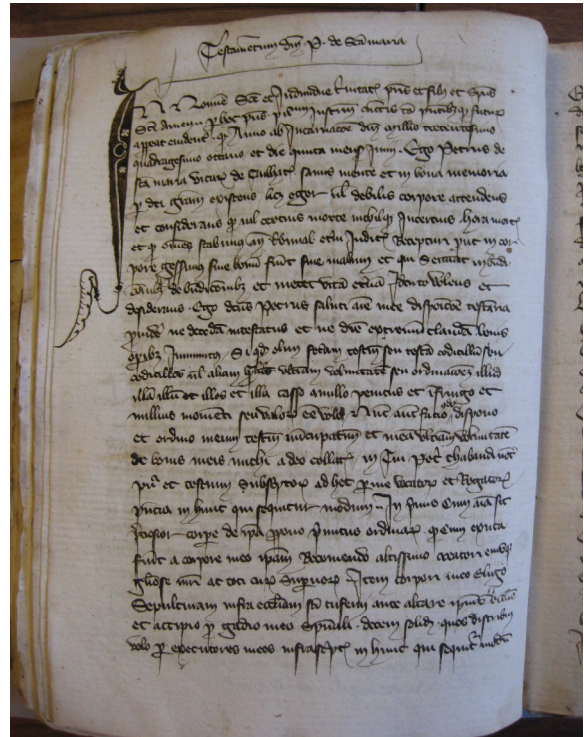 Testamentum dni P. de Sca maria
In Nomine Sce et Individue trinitatis pris et filii et spus
Sci Amen. p hoc pns pubcm Instrm cunctis tā pntibz q futur
appeat evident. q Anno ab Incarnacoe dni millio trecentesimo
quadragesimo octavo et die quinta mens Junii. Ego Petrus de
sca maria vicar de Culhat sanus mente et in bona memoria
p dei gram existens licz eger vl debilis corpore attendens
et considerans q nil certius morte nichilq Incertius hora mort
et q ōnes stabimus an tbunal et Judic Receptur put in cor
pore gessimus sive bonū fuit sive malum et qui seminat in bndi
camibz de bndicoibz et metet vitā etnā Idcirco volens et
desiderans. Ego dcus Petrus saluti aīe mee disposicoe testaria
pvidē ne decedā intestatus et ne diē extremū claudā bonis
opibz Si qd olim feceram testm seu testa codicillū seu
codicillos vl aliam ultimam voluntatē seu ordinacoem illud
illā illū et illos et illa casso anullo penitus et īfringo et
nullius momenti seu valoris eē volo. Nūc aut facio dispono
et ordino meum testm nūcupatiuū et meā ultimā voluntatē
de bonis meis michi a deo collat in Pet chabandi not
pu et testium subscptor ad hec p me vocator et Rogator
pncia in hunc qui sequitur modum. In primis cum aīa sit
corpe de ipā pono pmitus ordinar q cum exuta
fuit a corpore meo ipam Recomendo altissimo creatori eiusq
gliose mri ac toti curie superior. Item corpori meo eligo
Sepulturam infra ecctiam sci ante altare
et accipio p gadio meo spuali. decem solid. quos distribui
volo p executores meos infrascpt in hunc qui sequit modū